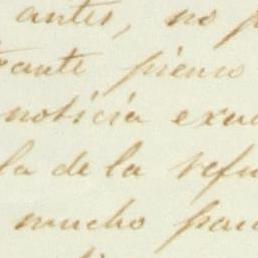 antes, no p
tante pienso
noticia exac
la de la refu
mucho para